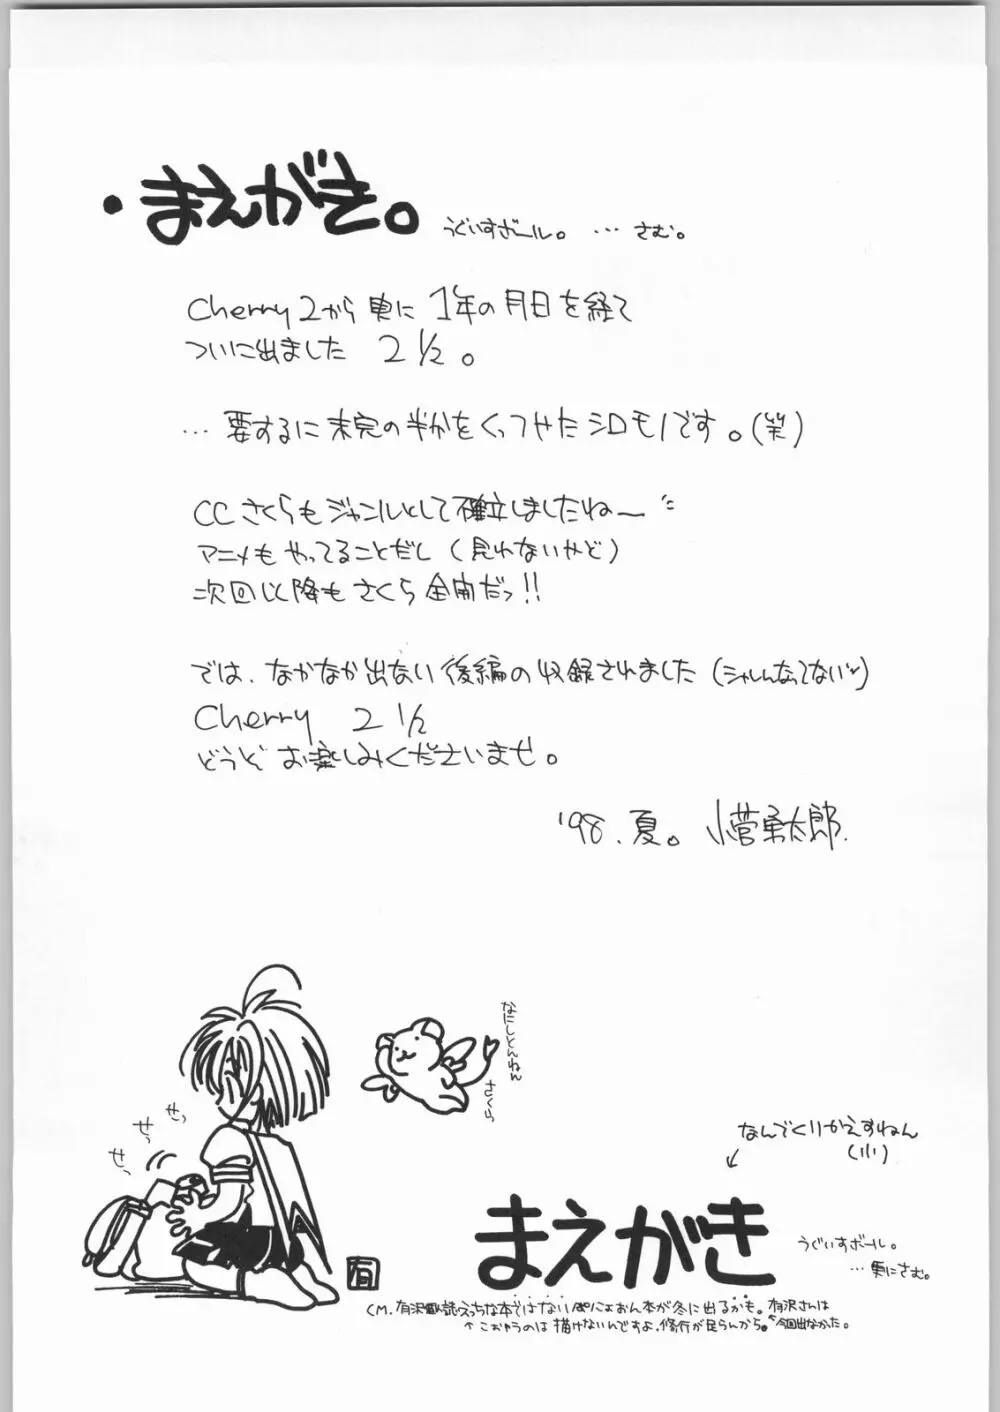 ・まえがき。
うぐいすボール。 … さむ。
Cherry 2から更に 1年の月日を経て
ついに出ました 2 1/2。
… 要するに未完の半かをくっつけたシロモノです。(笑)
CCさくらもジャンルとして確立しましたね〜
アニメもやってることだし (見れないけど)
次回以降もさくら全開だっ!!
では、なかなか出ない後編の収録されました (シャレんなってない)
Cherry 2 1/2
どうぞお楽しみくださいませ。
'98.夏。 小菅勇太郎.
なにしとんねん
さくら
せっ
せっ
せっ
なんでくりかえすねん
(小)
まえがき
うぐいすボール。
… 更にさむ。
CM. 有沢 えっちな本ではない にょおん本が冬に出るかも。有沢さんは
↑こおゆうのは描けないんですよ、修行が足らんから。 今回出なかった。
有